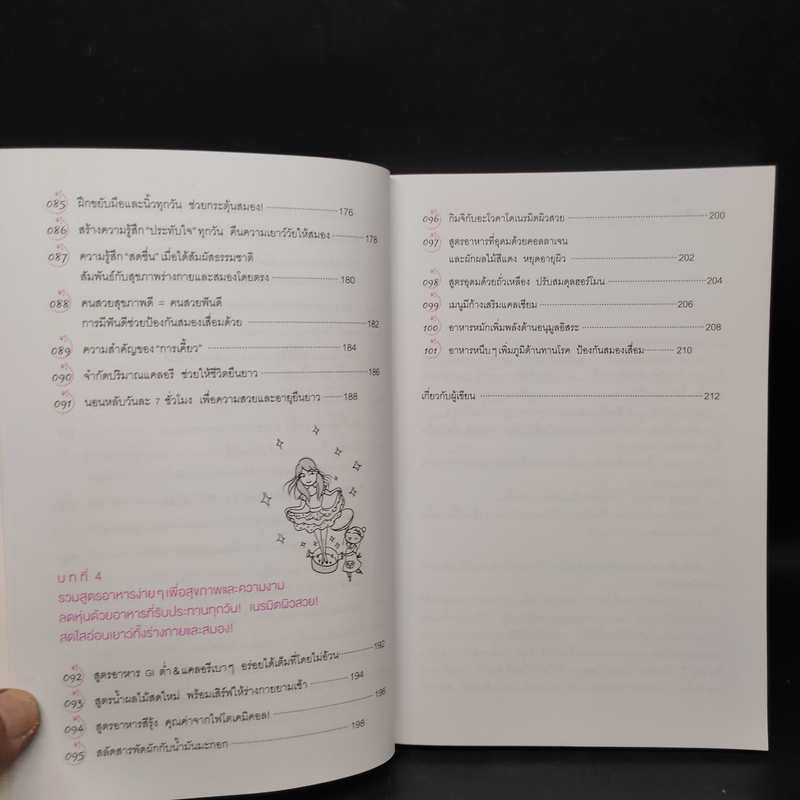 085 ฝึกขยับมือและนิ้วทุกวัน ช่วยกระตุ้นสมอง! 176
086 สร้างความรู้สึก "ประทับใจ" ทุกวัน คืนความเยาว์วัยให้สมอง 178
087 ความรู้สึก "สดชื่น" เมื่อได้สัมผัสธรรมชาติ
สัมพันธ์กับสุขภาพร่างกายและสมองโดยตรง 180
088 คนสวยสุขภาพดี = คนสวยฟันดี
การมีฟันดีช่วยป้องกันสมองเสื่อมด้วย 182
089 ความสำคัญของ "การเคี้ยว" 184
090 จำกัดปริมาณแคลอรี ช่วยให้ชีวิตยืนยาว 186
091 นอนหลับวันละ 7 ชั่วโมง เพื่อความสวยและอายุยืนยาว 188
บทที่ 4
รวมสูตรอาหารง่ายๆ เพื่อสุขภาพและความงาม
ลดหุ่นด้วยอาหารที่รับประทานทุกวัน! เนรมิตผิวสวย!
สดใสอ่อนเยาว์ทั้งร่างกายและสมอง!
092 สูตรอาหาร GI ต่ำ & แคลอรีเบาๆ อร่อยได้เต็มที่โดยไม่อ้วน 192
093 สูตรน้ำผลไม้สดใหม่ พร้อมเสิร์ฟให้ร่างกายยามเช้า 194
094 สูตรอาหารสีรุ้ง คุณค่าจากไฟโตเคมิคอล! 196
095 สลัดสารพัดผักกับน้ำมันมะกอก 198
096 กิมจิกับอะโวคาโดเนรมิตผิวสวย 200
097 สูตรอาหารที่อุดมด้วยคอลลาเจน
และผักผลไม้สีแดง หยุดอายุผิว 202
098 สูตรอุดมด้วยถั่วเหลือง ปรับสมดุลฮอร์โมน 204
099 เมนูมีก้างเสริมแคลเซียม 206
100 อาหารหมักเพิ่มพลังต้านอนุมูลอิสระ 208
101 อาหารหนืบๆ เพิ่มภูมิต้านทานโรค ป้องกันสมองเสื่อม 210
เกี่ยวกับผู้เขียน 212